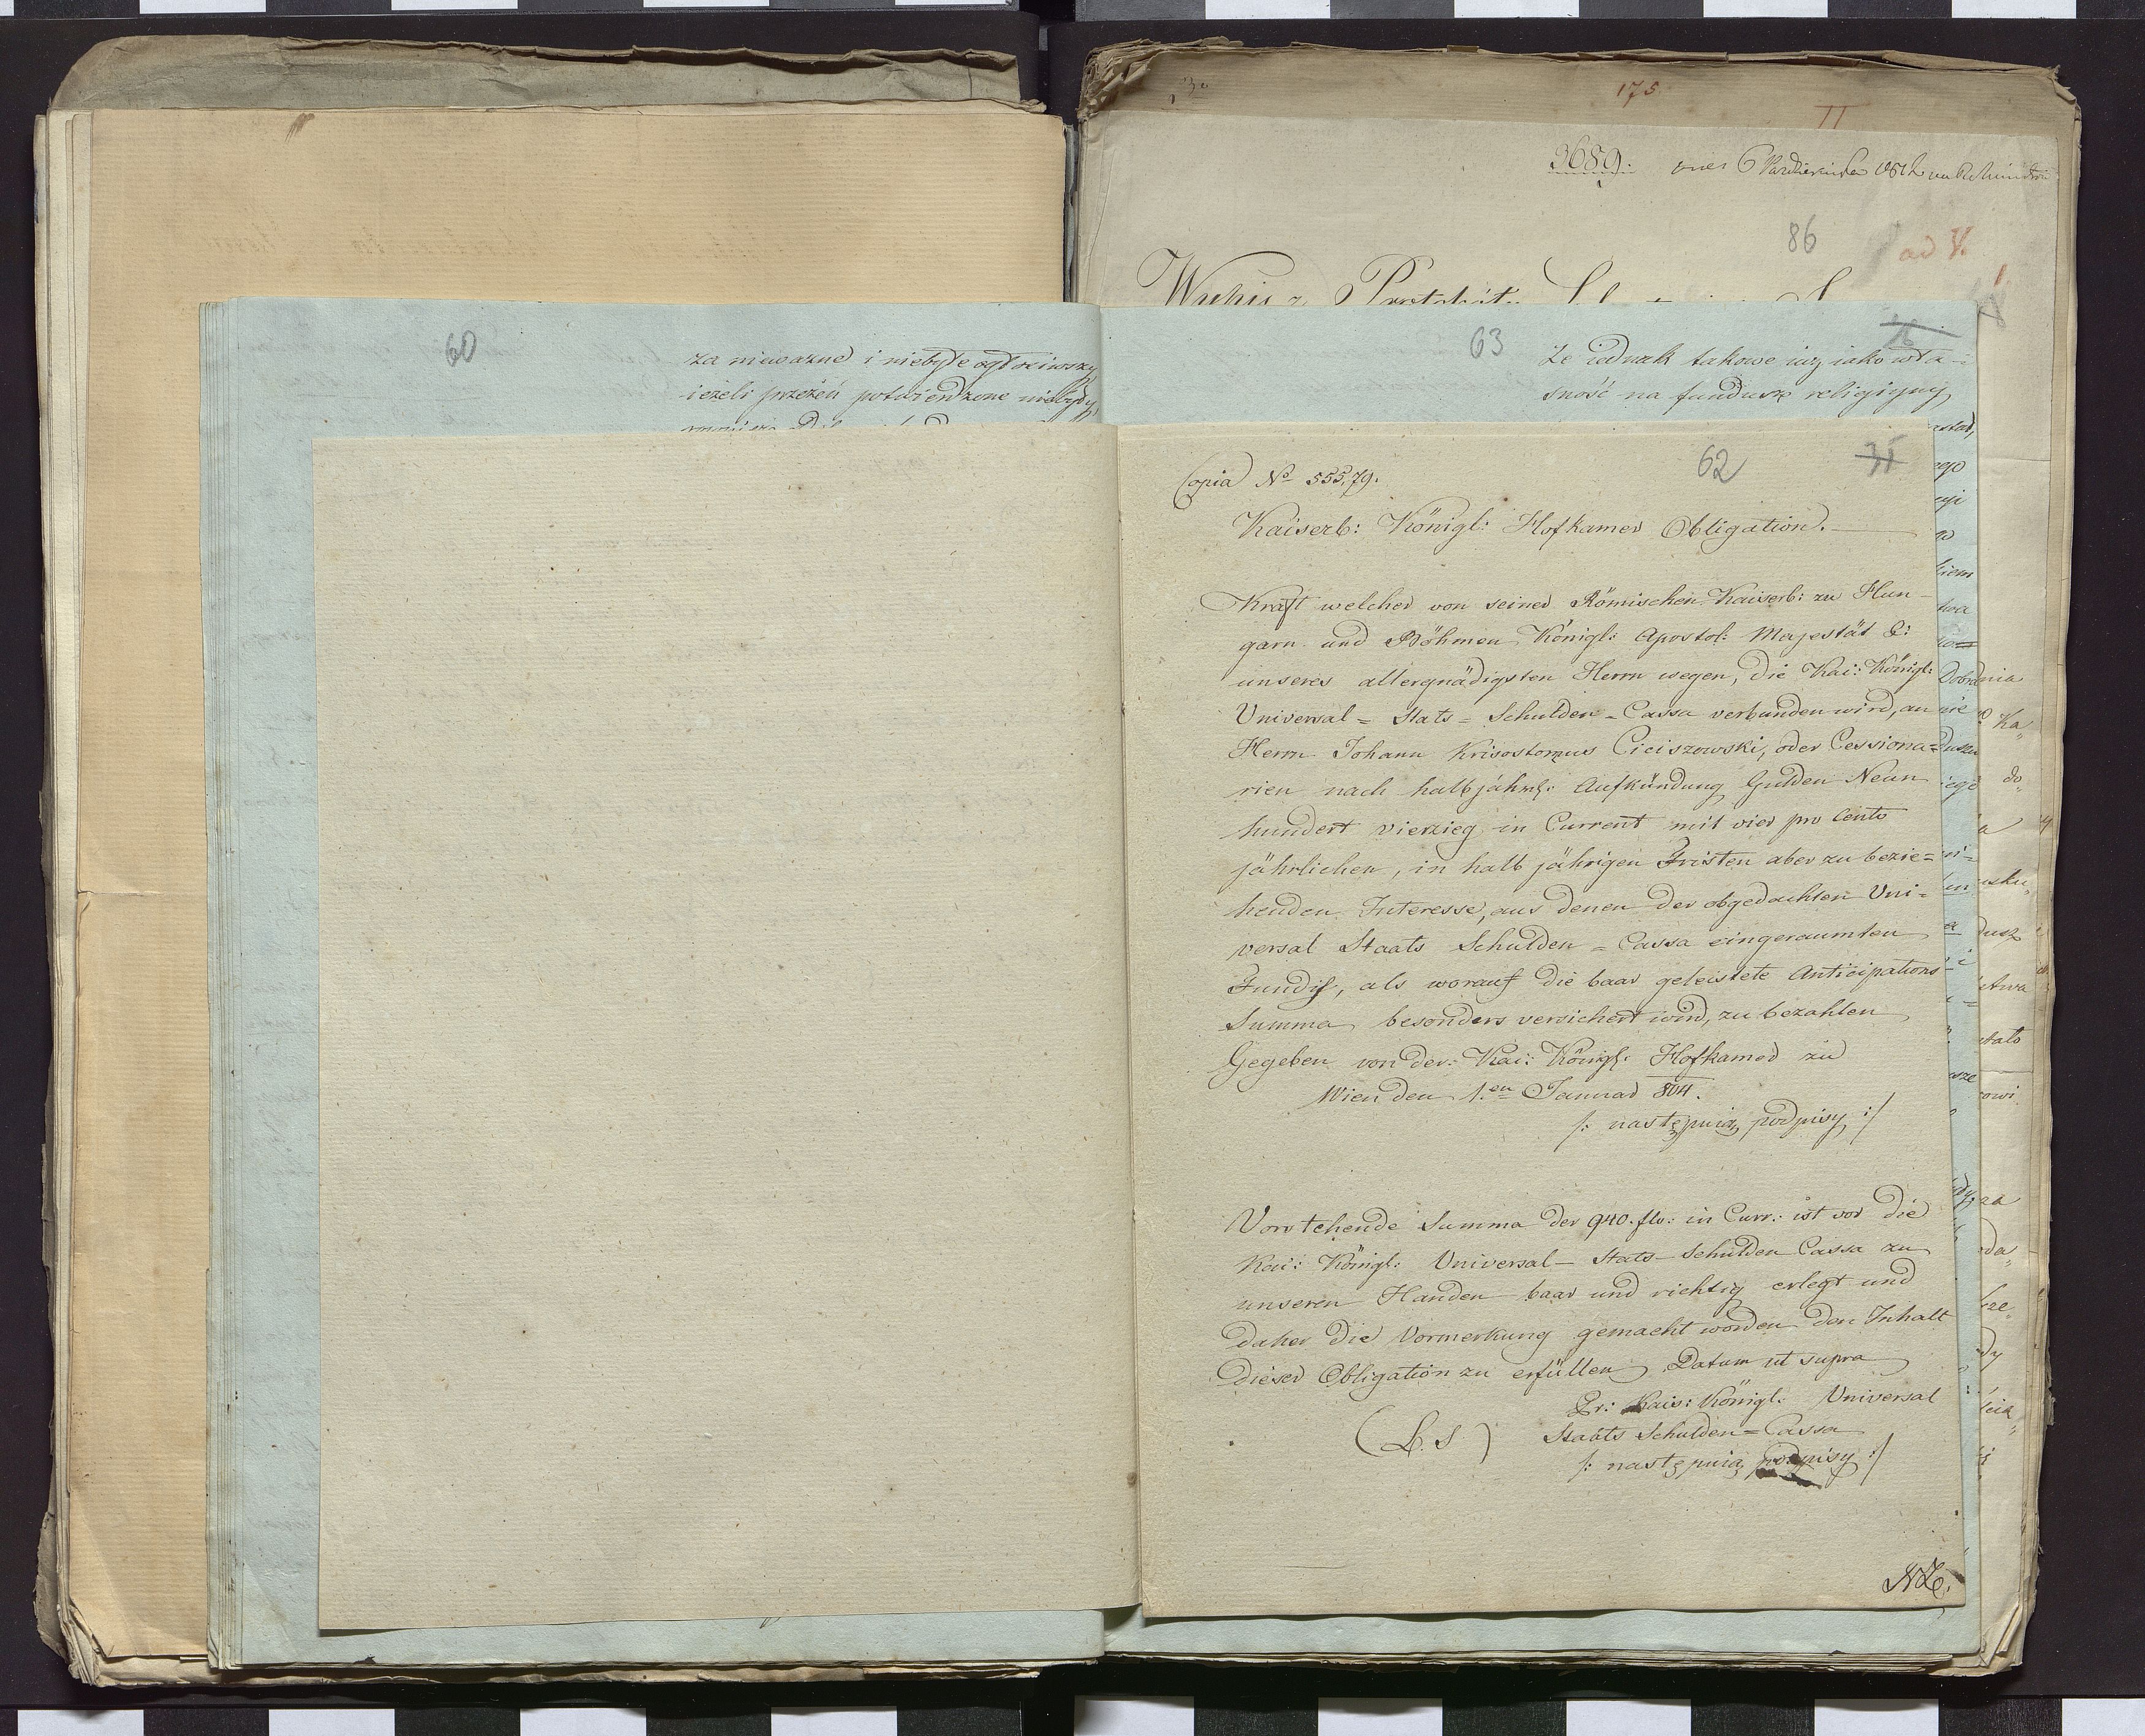 175
II
3689.
86
ad V.
60
za nieważne i niebyłe ogłosiwszy,
ieżeli przezeń potwierdzone niebędą,
63
że iednak takowe iuż iako wła-
sność na fundusz religiyny
62
Copia No 555,79.
Kaiserl: Königl: Hofkamer Obligation.
Kraft welcher von seiner Römischen Kaiserl: zu Hun-
garn und Böhmen Königl: Apostol: Majestät &:
unseres allergnädigsten Herrn wegen, die Kai: Königl:
Universal = Stats = Schulden = Cassa verbunden wird, an
Herrn Johann Krisostomus Ciciszowski, oder Cessiona=
rien nach halbjährig: Aufkündung Gulden Neun
hundert vierzieg in Current mit vier pro Cento
jährlichen, in halb jährigen Fristen aber zu bezie=
henden Interesse, aus denen der obgedachten Uni=
versal Staats Schulden = Cassa eingeraumten
Fundis, als worauf die baar geleistete Anticipations
Summa besonders versichert wird, zu bezahlen
Gegeben von der: Kai: Königl: Hofkamer zu
Wien den 1.en Januar 804.
/: następuią podpisy :/
Vorstehende Summa der 940. flr: in Curr: ist vor die
Kai: Königl: Universal - Stats - Schulden Cassa zu
unseren Handen baar und richtig erlegt und
daher die Vormerkung gemacht worden den Inhalt
dieser Obligation zu erfüllen Datum ut supra
Pr: Kais: Königl: Universal
(L. S) Staats Schulden = Cassa
/: następuią podpisy :/